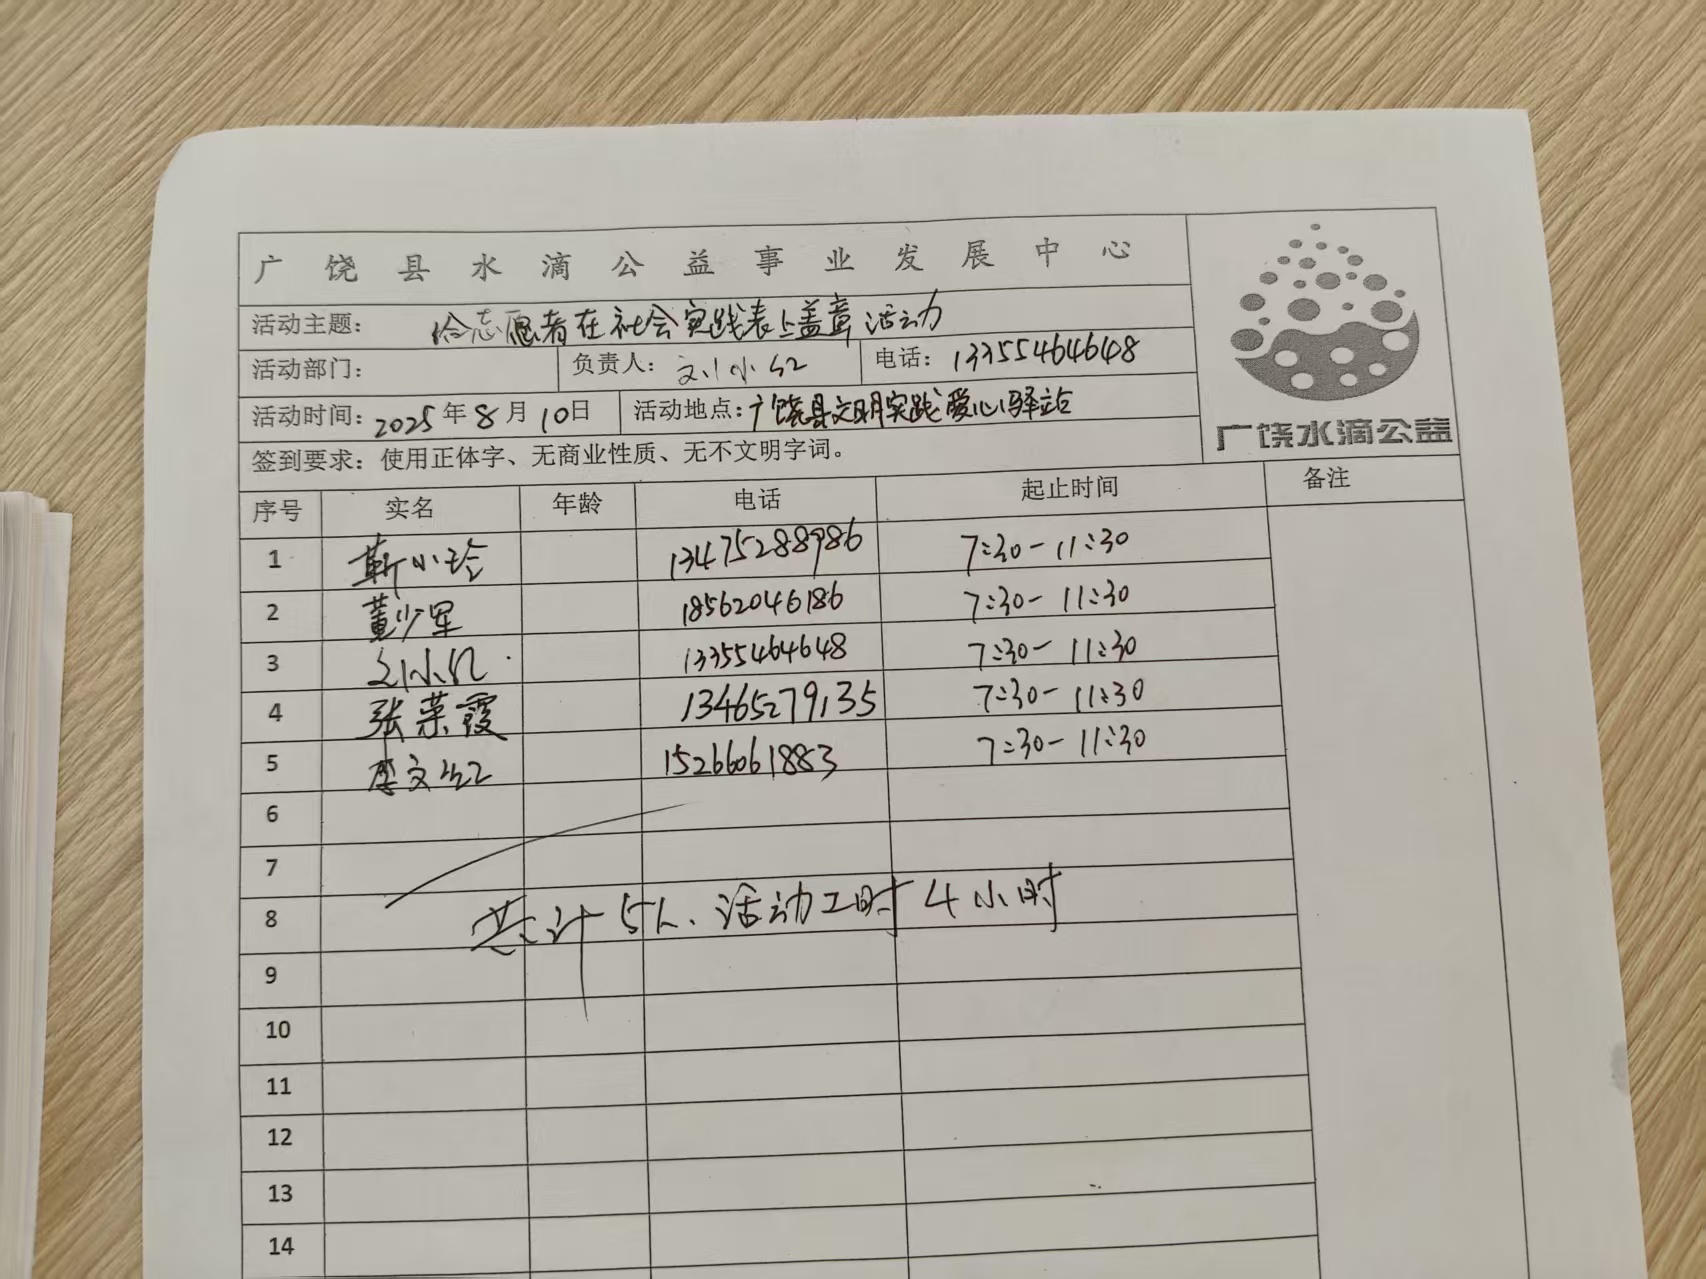 广饶县水滴公益事业发展中心
活动主题： 给志愿者在社会实践表上盖章活动
活动部门： 负责人：刘小红 电话：13355464648
活动时间：2025年8月10日 活动地点：广饶县文明实践爱心驿站
广饶水滴公益
签到要求：使用正体字、无商业性质、无不文明字词。
序号 实名 年龄 电话 起止时间 备注
1 靳小玲 13475288986 7:30-11:30
2 黄少军 18562046186 7:30-11:30
3 刘小红 13355464648 7:30-11:30
4 张荣霞 13465279135 7:30-11:30
5 李文红 15266061883 7:30-11:30
6
7
8 共计5人、活动工时4小时
9
10
11
12
13
14